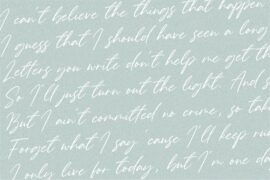 I can't believe the things that happen
I guess that I should have seen a long
Letters you write don't help me get th
So I'll just turn out the light. And j
But I ain't committed no crime, so tak
Forget what I say 'cause I'll keep run
I only live for today, but I'm one da